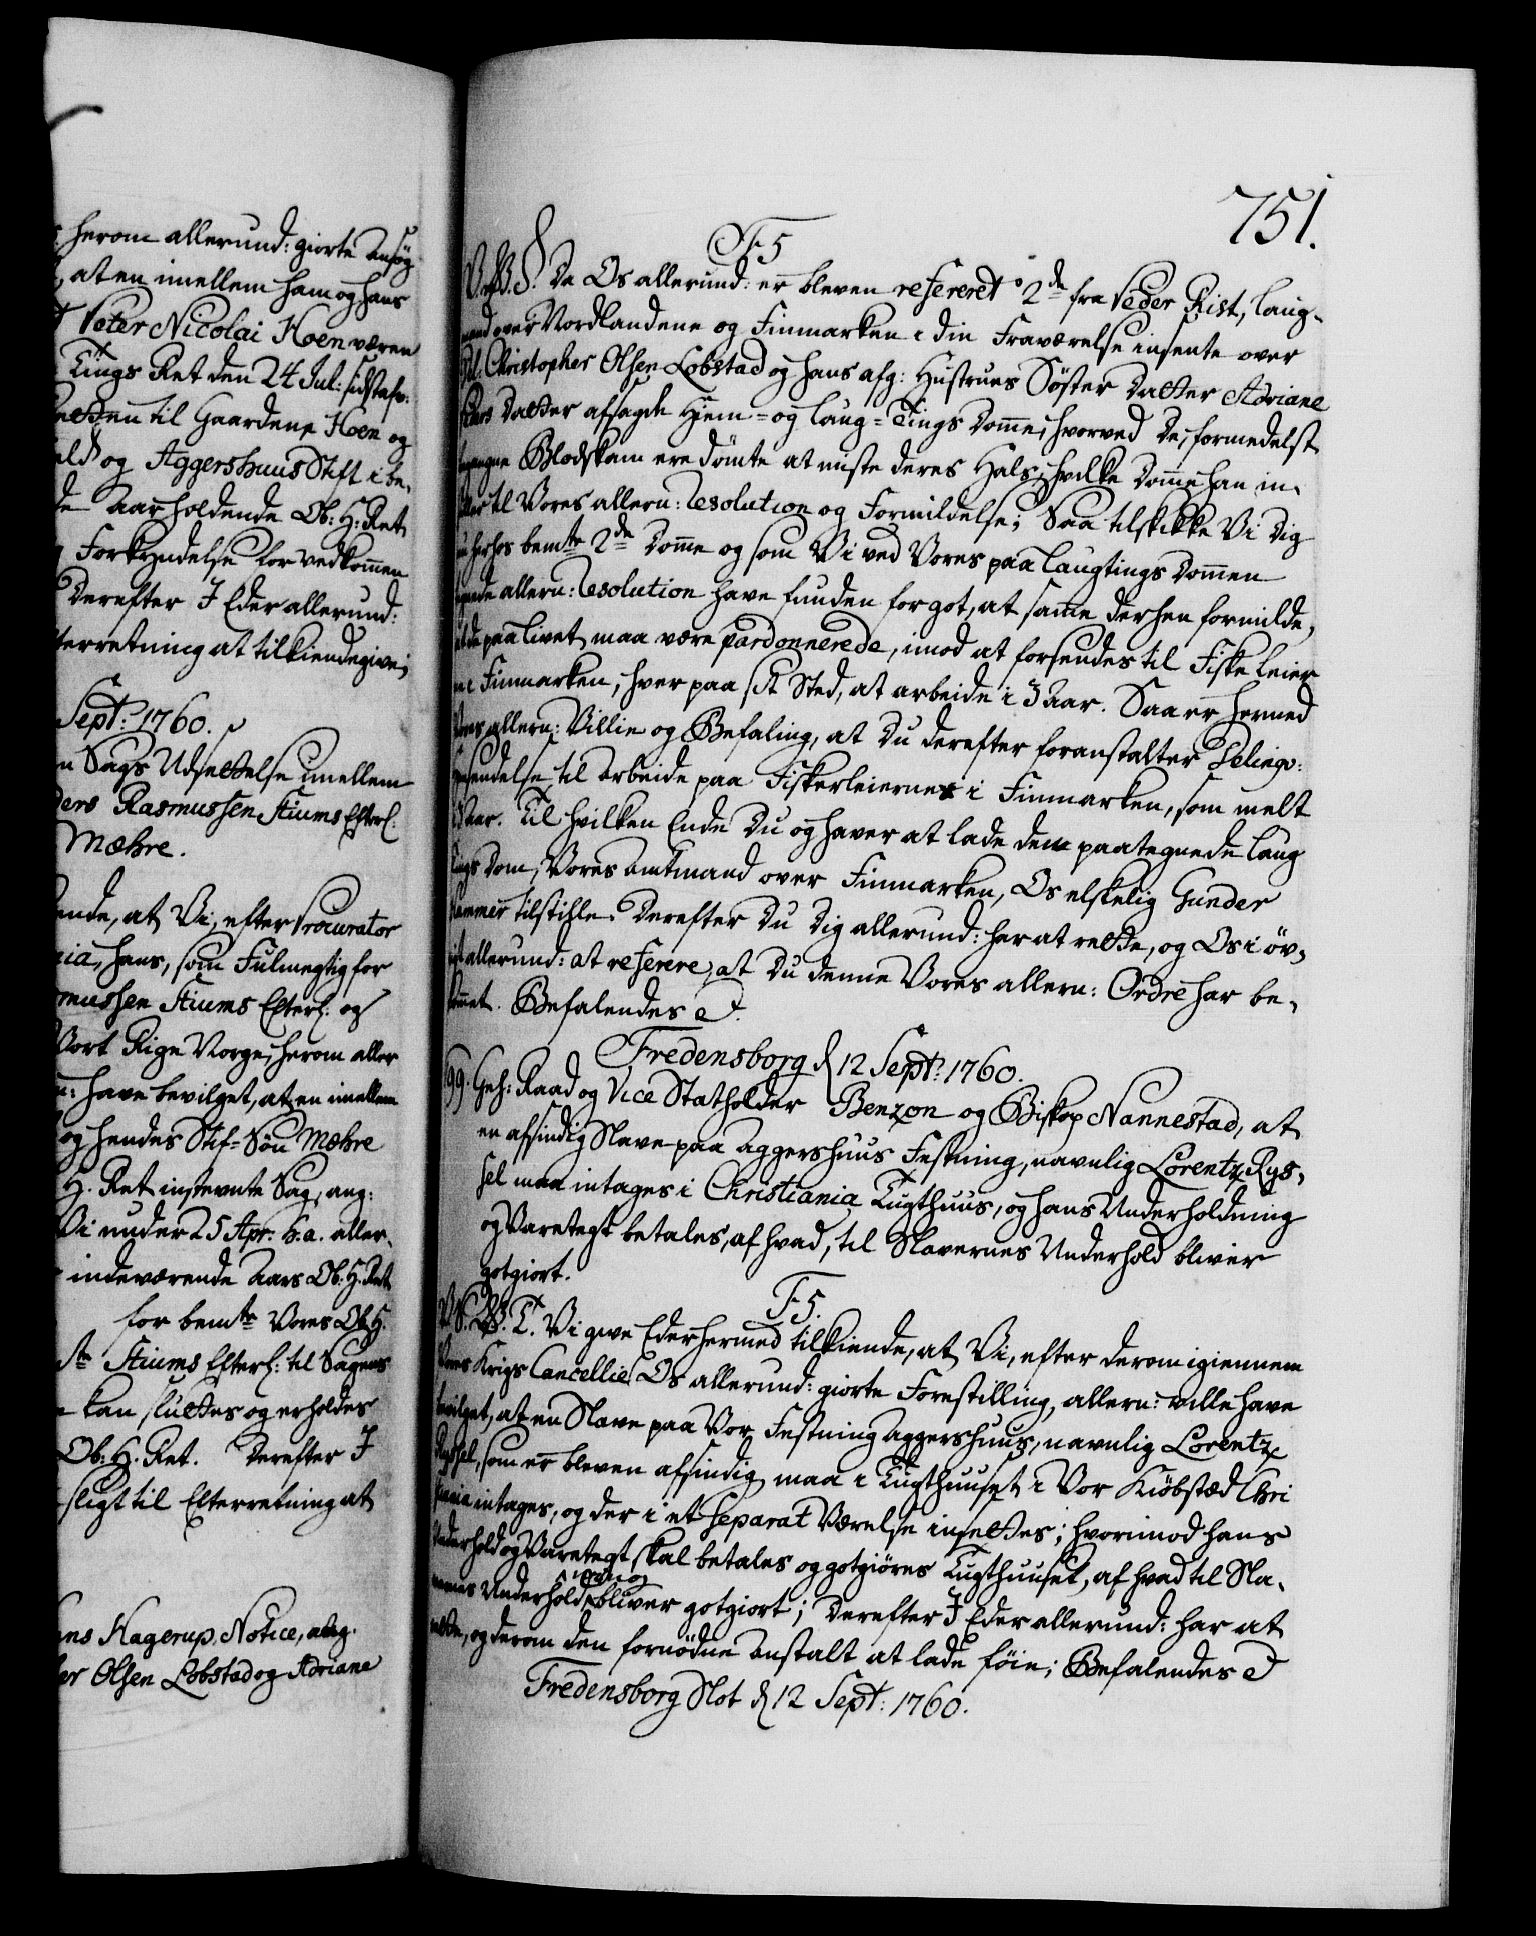 herom allerund: giorte Ansøg-
at en imellem ham og hans
Peter Nicolai Hoen væren
Tings Ret den 24 Jul: sidstafv:
retten til Gaardene Hoen og
og Aggershuus Stift i be-
de Aar holdende Ob: H: Ret
Forkyndelse for vedkommen
Derefter I Eder allerund:
terretning at tilkiendegive;
Sept: 1760.
n Sags Udsettelse imellem
ders Rasmussen Stiums Efterl:
Mæhre.
ende, at Vi, efter Procurator
nia, hans, som Fulmegtig for
mussen Stiums Efterl: og
Vort Rige Norge, herom aller
n: have bevilget, at en imellem
og hendes Stif-Søn Mæhre
H. Ret instevnte Sag, ang:
Vi under 25 Apr: h.a. aller-
indeværende Aars Ob: H. Ret
for bemte Vores Ob. H.
Stiums Efterl: til Sagens
kan sluttes og erholdes
Ob: H. Ret. Derefter I
sligt til Efterretning at
ans Hagerup. Notice, ang.
er Olsen Lobstad og Adriane
751.
F5
V.W.G. Da Os allerund: er bleven refereret 2de fra Peder Rist, Laug-
mand over Nordlandene og Finmarken i din Fraværelse insente over
Christopher Olsen Lobstad og hans afg: Hustrues Søster Datter Adriane
Datter afsagde Hiem- og Laug-Tings Domme, hvorved De, formedelst
begangne Blodskam ere dømte at miste deres Hals, hvilke Domme han in-
til Vores allern: Resolution og Formildelse; Saa tilskikke Vi Dig
herhos bemte 2de Domme og som Vi ved Vores paa Laugtings Dommen
allern: Resolution have funden for got, at samme derhen formilde,
at de paa Livet maa være pardonnerede, imod at forsendes til Fiske Leier
ne i Finmarken, hver paa sit Sted, at arbeide i 3 Aar. Saa er hermed
Vores allern: Villie og Befaling, at Du derefter foranstalter Delinqv:
forsendelse til Arbeide paa Fiskerleierne i Finmarken, som melt
3 Aar. Til hvilken Ende Du og haver at lade den paategnede Laug
tings Dom, Vores Amtmand over Finmarken, Os elskelig Gunder
Hammer tilstille. Derefter Du Dig allerund: har at rette, og Os i øv-
rigt allerund: at referere, at Du denne Vores allern: Ordre har be-
kommet. Befalendes &.
Fredensborg d 12 Sept: 1760.
99. Geh: Raad og Vice Statholder Benzon og Biskop Nannestad, at
en afsindig Slave paa Aggershuus Festning, navnlig Lorentz Rys-
sel maa intages i Christiania Tugthuus, og hans Underholdning
og Varetegt betales, af hvad, til Slavernes Underhold bliver
gotgiort.
F5.
V.S.W.T. Vi give Eder hermed tilkiende, at Vi, efter derom igiennem
Vores Krigs Cancellie Os allerund: giorte Forestilling, allern: ville have
bevilget, at en Slave paa Vor Festning Aggershuus, navnlig Lorentz
Ryssel, som er bleven afsindig maa i Tugthuuset i Vor Kiøbsted Chri
stiania intages, og der i et Separat Værelse insettes; hvorimod hans
Underhold og Varetegt skal betales og gotgiøres Tugthuuset, af hvad til Sla-
vernes Underhold bliver gotgiort; Derefter I Eder allerund: har at
rette, og derom den fornødne Anstalt at lade føie; Befalendes &
Fredensborg Slot d 12 Sept: 1760.